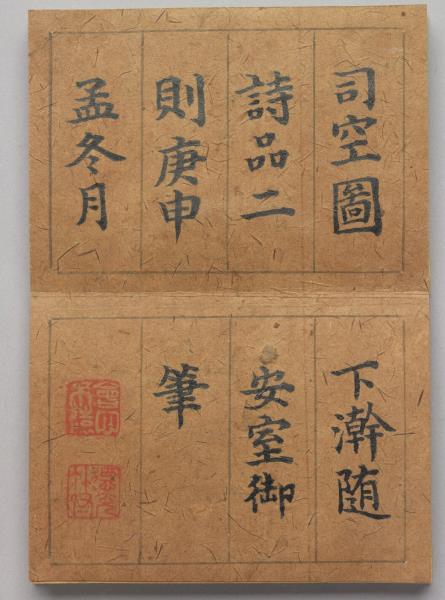 司空圖
詩品二
則庚申
孟冬月
下澣随
安室御
筆